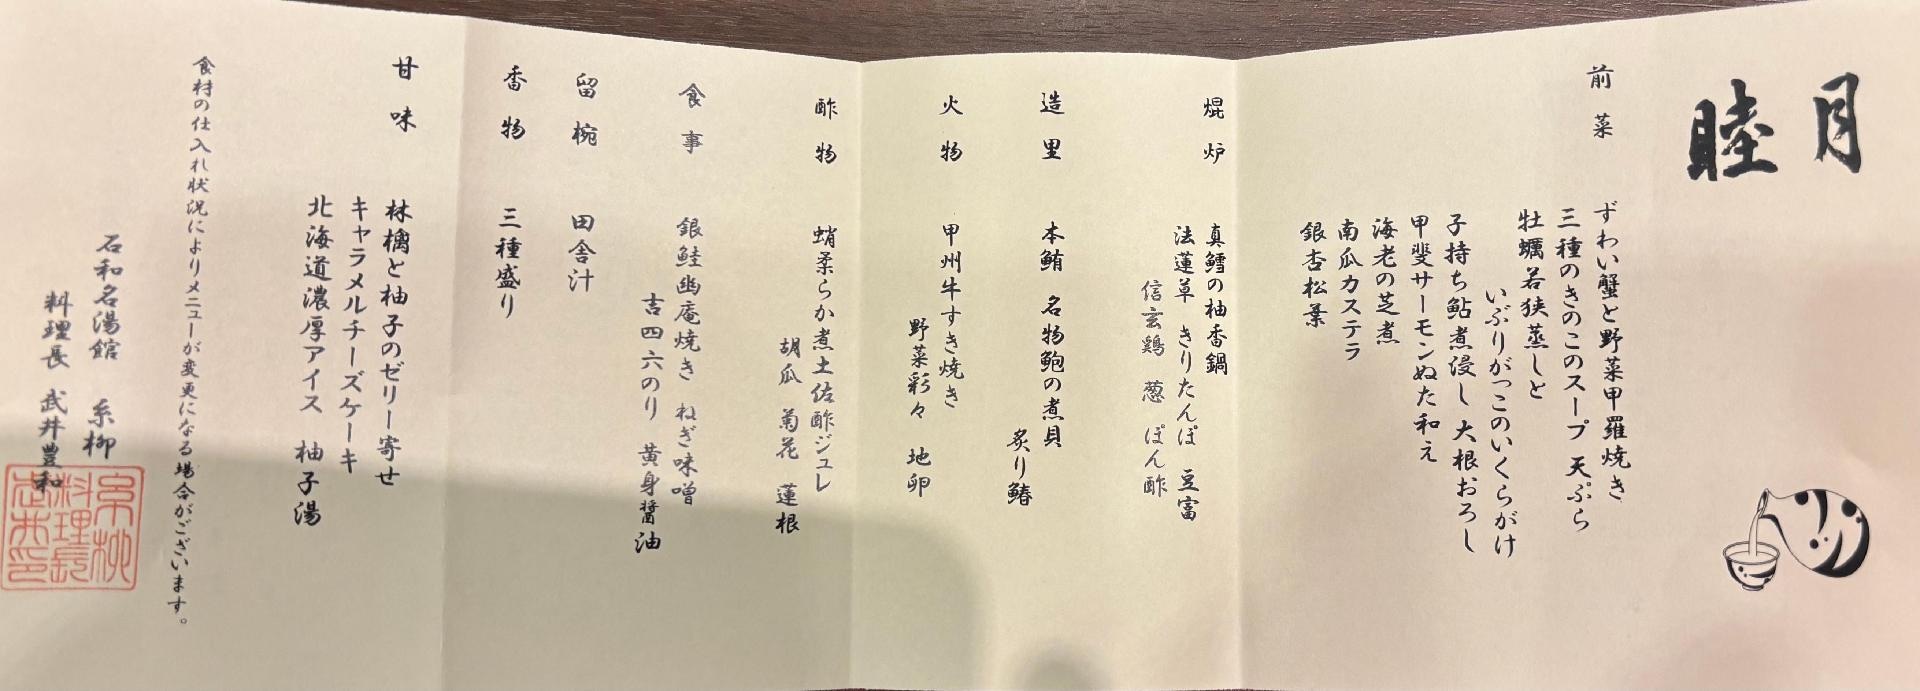 睦月
前菜
ずわい蟹と野菜甲羅焼き
三種のきのこのスープ 天ぷら
牡蠣若狭蒸しと
いぶりがっこのいくらがけ
子持ち鮎煮浸し 大根おろし
甲斐サーモンぬた和え
海老の芝煮
南瓜カステラ
銀杏松葉
焜炉
真鱈の柚香鍋
法蓮草 きりたんぽ 豆富
信玄鶏 葱 ぽん酢
造里
本鮪 名物鮑の煮貝
炙り鰆
火物
甲州牛すき焼き
野菜彩々 地卵
酢物
蛸柔らか煮土佐酢ジュレ
胡瓜 菊花 蓮根
食事
銀鮭幽庵焼き ねぎ味噌
吉四六のり 黄身醤油
留椀
田舎汁
香物
三種盛り
甘味
林檎と柚子のゼリー寄せ
キャラメルチーズケーキ
北海道濃厚アイス 柚子湯
食材の仕入れ状況によりメニューが変更になる場合がございます。
石和名湯館 糸柳
料理長 武井豊和
糸柳
料理長
武井印